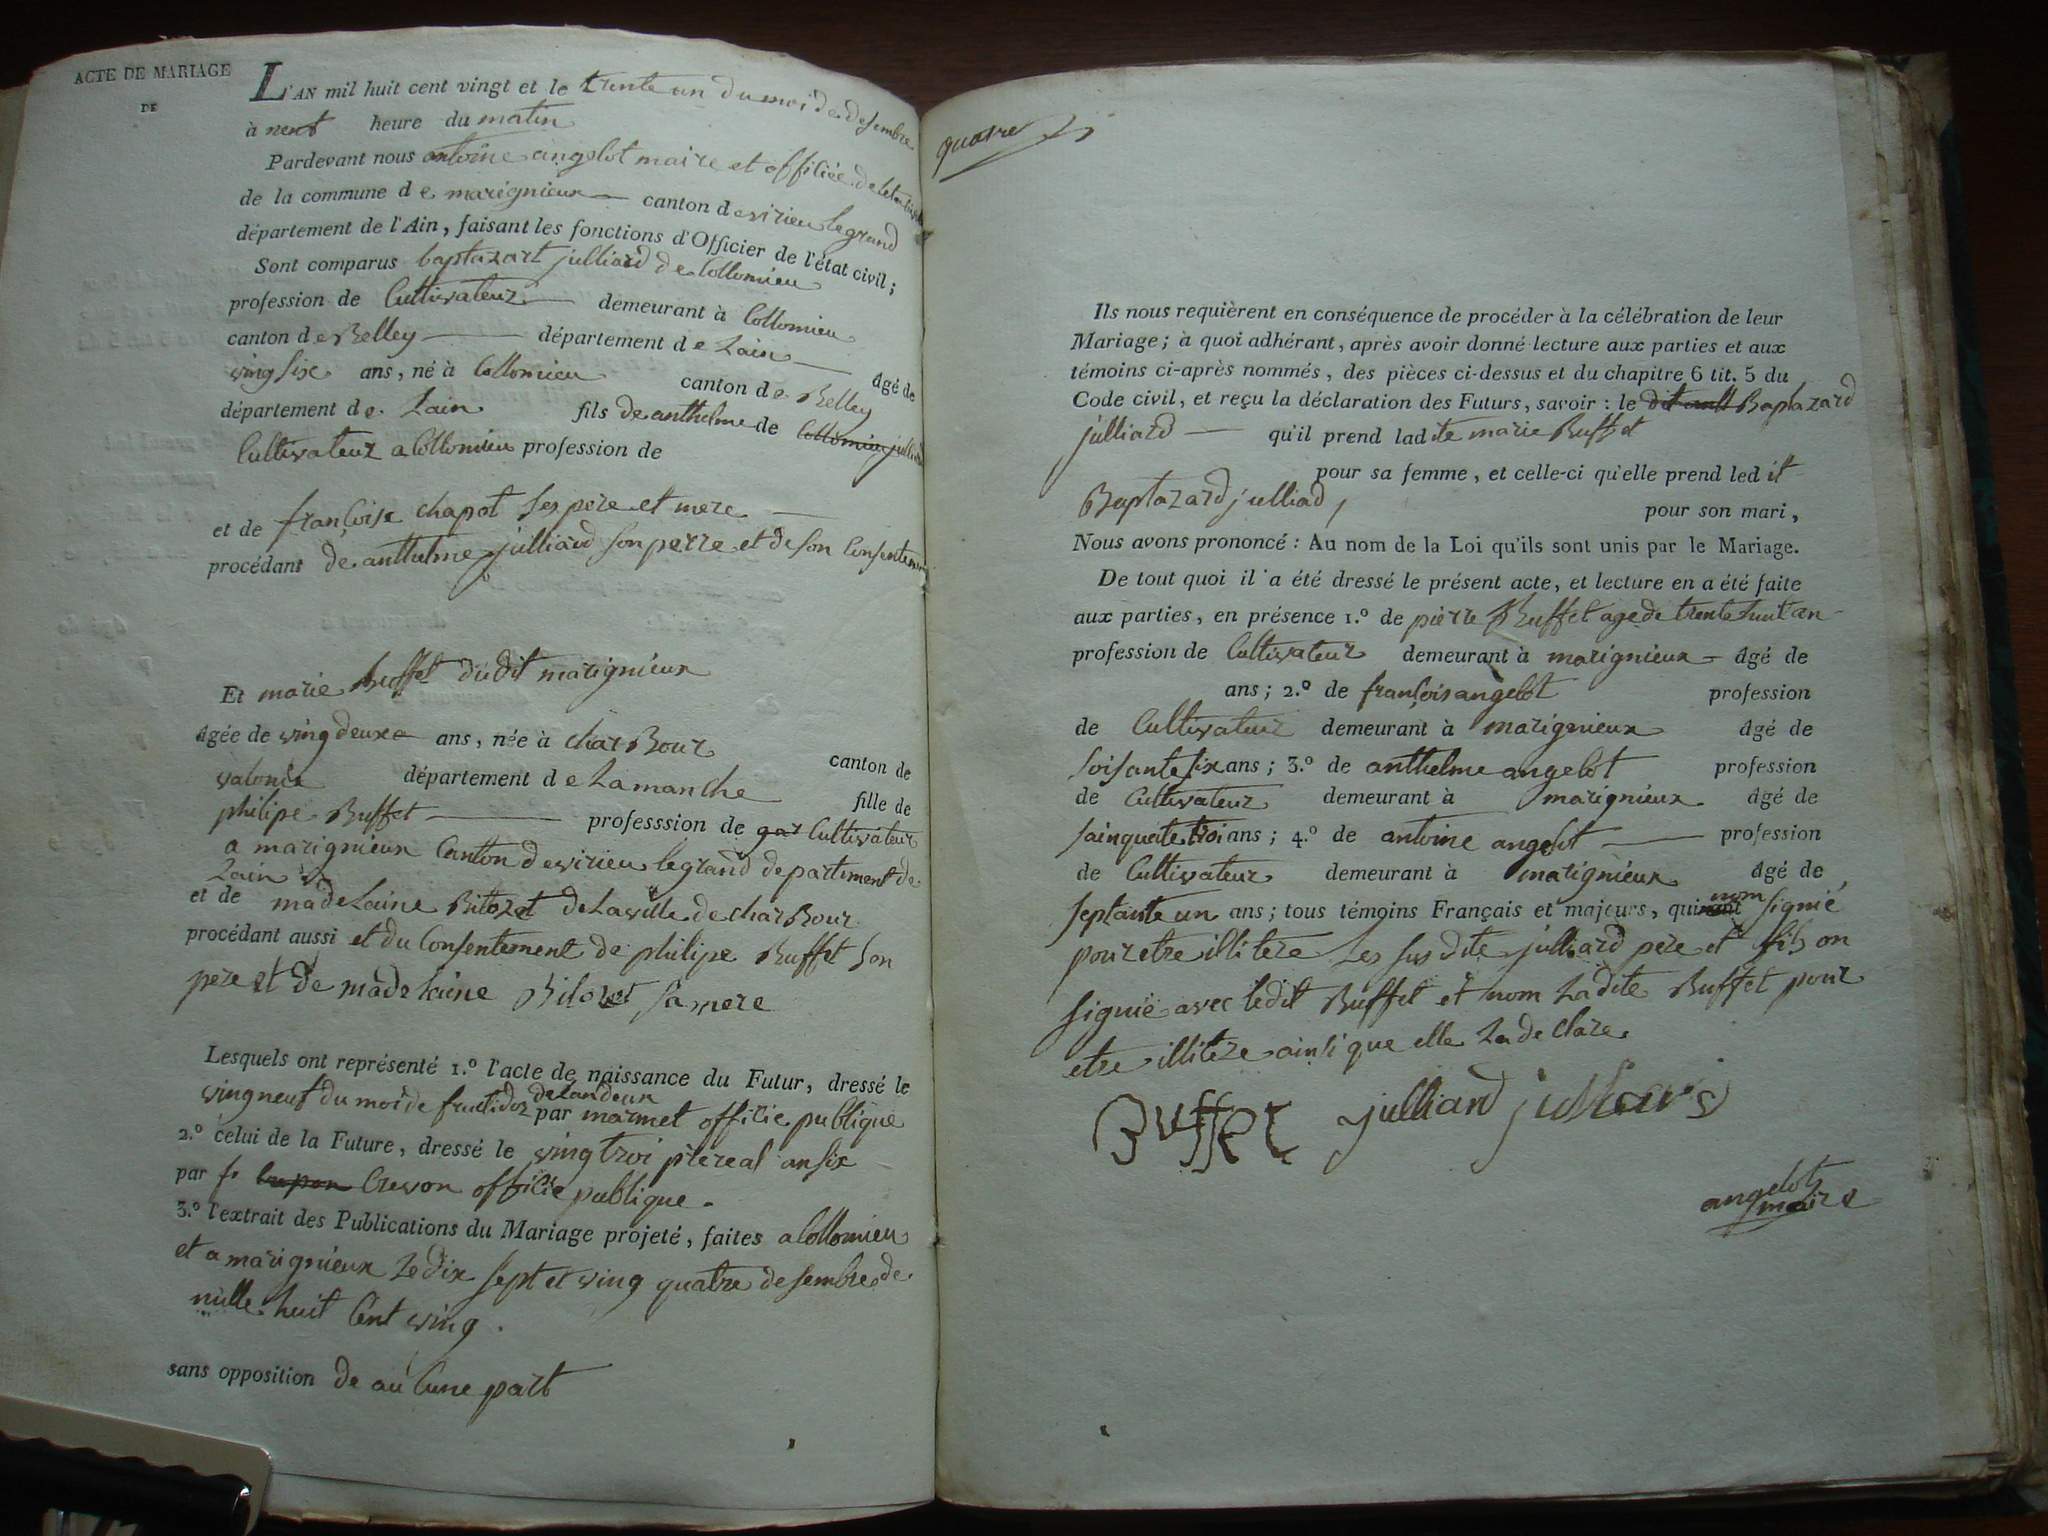 ACTE DE MARIAGE
DE
L'AN mil huit cent vingt et le trente un du moi de desembre
à neuf heure du matin
Pardevant nous antoine angelot maire et offiliée
de la commune de marignieux canton de virieu le grand
département de l'Ain, faisant les fonctions d'Officier de l'état civil;
Sont comparus baptazart julliard de Collomieu
profession de Cultivateur demeurant à Collomieu
canton de Belley département de Lain âgé de
ving six ans, né à Collomieu canton de Belley
département de Lain fils de anthelme de Collomieu julliard
Cultivateur a Collomieu profession de
et de françoise chapot Ses pere et mere
procédant de anthelme julliard son perre et de son Consentem
Et marie Buffet dudit marignieux
âgée de ving deuxe ans, née à char Bour canton de
valonia département de Lamanche fille de
philipe Buffet professsion de gar Cultivateur
a marignieux Canton de virieu le grand departement de
Lain
et de madelaine Bitozet de La ville de char Bour
procédant aussi et du Consentement de philipe Buffet Son
pere et de madelaine Bitozet Sa mere
Lesquels ont représenté 1.º l'acte de naissance du Futur, dressé le
ving neuf du moi de fructidor de Lan deux par marmet offilie publique
2.º celui de la Future, dressé le ving troi prereal an six
par f. Crevon offilie publique.
3.º l'extrait des Publications du Mariage projeté, faites a Collomieu
et a marignieux Le dix sept et ving quatre desembre de
mille huit Cent ving.
sans opposition de au Cune part
quatre
Ils nous requièrent en conséquence de procéder à la célébration de leur
Mariage; à quoi adhérant, après avoir donné lecture aux parties et aux
témoins ci-après nommés, des pièces ci-dessus et du chapitre 6 tit. 5 du
Code civil, et reçu la déclaration des Futurs, savoir: le dit Baptazard
julliard qu'il prend ladite marie Buffet
pour sa femme, et celle-ci qu'elle prend ledit
Baptazard julliad, pour son mari,
Nous avons prononcé: Au nom de la Loi qu'ils sont unis par le Mariage.
De tout quoi il a été dressé le présent acte, et lecture en a été faite
aux parties, en présence 1.º de pièrre Buffet age de trente huit an
profession de Cultivateur demeurant à marignieux âgé de
ans; 2.º de françois angelot profession
de Cultivateur demeurant à marignieux âgé de
soisante six ans; 3.º de anthelme angelot profession
de Cultivateur demeurant à marignieux âgé de
sainquate troi ans; 4.º de antoine angelot profession
de Cultivateur demeurant à marignieux âgé de
septante un ans; tous témoins Français et majeurs, qui nom signié
pour etre illitere Les sus dite julliard pere et fils on
signié avec ledit Buffet et nom La dite Buffet pour
etre illitere ainsi que elle La de Clare.
Buffet julliard julliard
angelot
maire